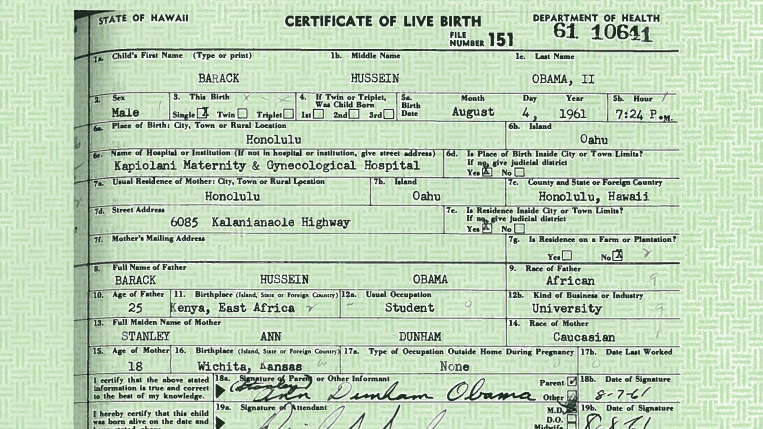 STATE OF HAWAII CERTIFICATE OF LIVE BIRTH DEPARTMENT OF HEALTH
FILE NUMBER 151 61 10641
1a. Child's First Name (Type or print) 1b. Middle Name 1c. Last Name
BARACK HUSSEIN OBAMA, II
2. Sex 3. This Birth 4. If Twin or Triplet, Was Child Born 5a. Birth Date Month Day Year 5b. Hour
Male Single X Twin Triplet 1st 2nd 3rd August 4, 1961 7:24 P.M.
6a. Place of Birth: City, Town or Rural Location 6b. Island
Honolulu Oahu
6c. Name of Hospital or Institution (If not in hospital or institution, give street address) 6d. Is Place of Birth Inside City or Town Limits? If no, give judicial district
Kapiolani Maternity & Gynecological Hospital Yes X No
7a. Usual Residence of Mother: City, Town or Rural Location 7b. Island 7c. County and State or Foreign Country
Honolulu Oahu Honolulu, Hawaii
7d. Street Address 7e. Is Residence Inside City or Town Limits? If no, give judicial district
6085 Kalanianaole Highway Yes X No
7f. Mother's Mailing Address 7g. Is Residence on a Farm or Plantation?
Yes No X
8. Full Name of Father 9. Race of Father
BARACK HUSSEIN OBAMA African 9
10. Age of Father 11. Birthplace (Island, State or Foreign Country) 12a. Usual Occupation 12b. Kind of Business or Industry
25 Kenya, East Africa Student 0 University 9
13. Full Maiden Name of Mother 14. Race of Mother
STANLEY ANN DUNHAM Caucasian 1
15. Age of Mother 16. Birthplace (Island, State or Foreign Country) 17a. Type of Occupation Outside Home During Pregnancy 17b. Date Last Worked
18 Wichita, Kansas None
I certify that the above stated information is true and correct to the best of my knowledge. 18a. Signature of Parent or Other Informant Parent Other 18b. Date of Signature
(Stanley) Ann Dunham Obama 8-7-61
I hereby certify that this child was born alive on the date and 19a. Signature of Attendant M.D. D.O. Midwife 19b. Date of Signature